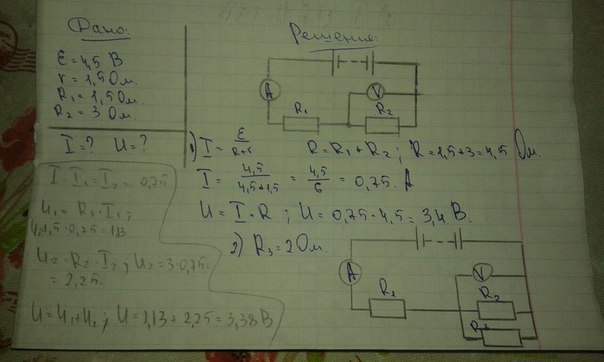 Дано:
ε = 4,5 В
r = 1,5 Ом.
R₁ = 1,5 Ом.
R₂ = 3 Ом.
I = ? U = ?
I = I₁ = I₂ = 0,75
U₁ = R₁ · I₁;
1,5 · 0,75 = 1,13
U₂ = R₂ · I₂; U₂ = 3 · 0,75 =
= 2,25.
U = U₁ + U₂; U = 1,13 + 2,25 = 3,38 В
Решение:
A
V
R₁
R₂
1) I = ε / R+r R = R₁ + R₂; R = 1,5 + 3 = 4,5 Ом.
I = 4,5 / 4,5+1,5 = 4,5 / 6 = 0,75. А
U = I · R; U = 0,75 · 4,5 = 3,4 В.
2) R₃ = 2 Ом.
A
V
R₁
R₂
R₃